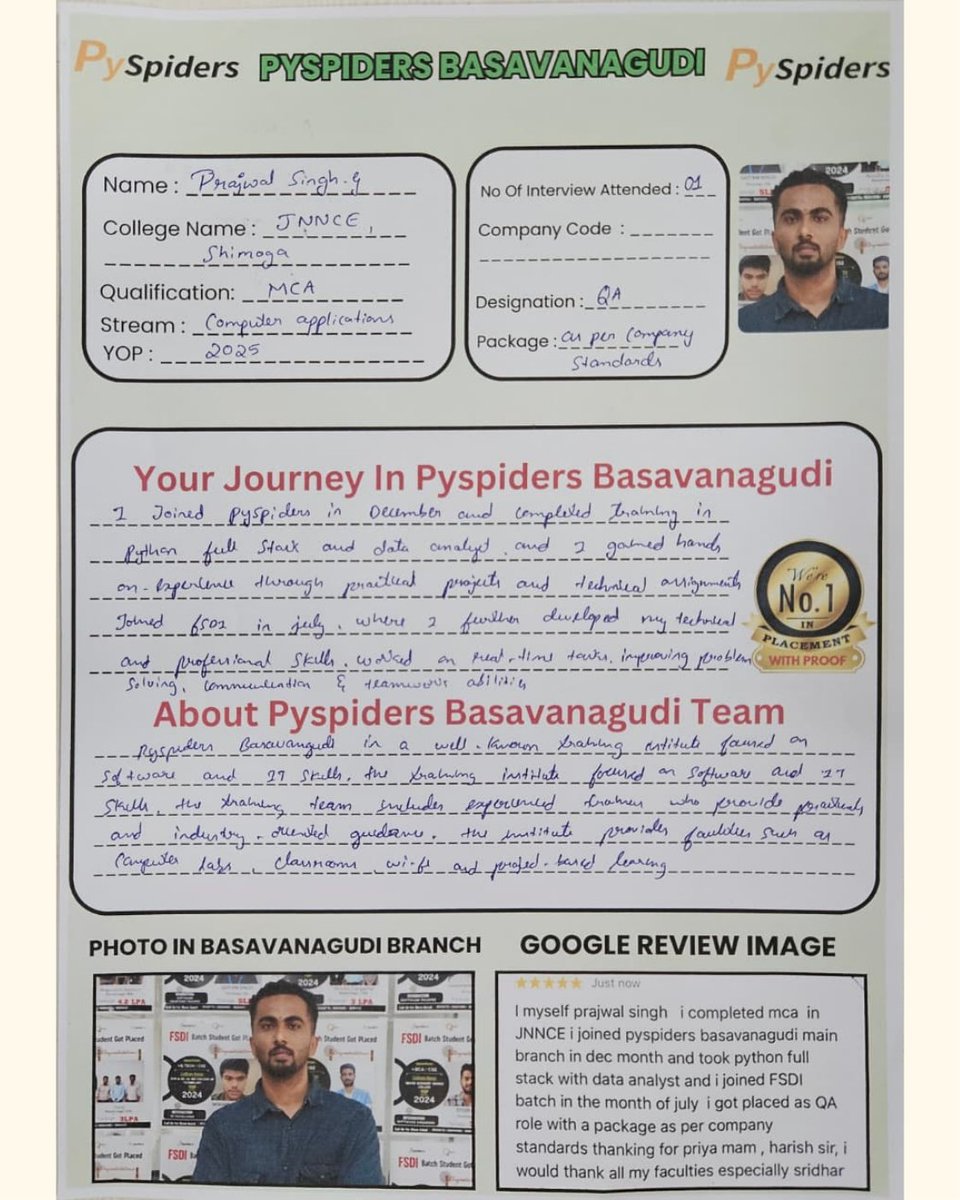 PySpiders PYSPIDERS BASAVANAGUDI PySpiders
Name : Prajwal Singh.G
College Name : JNNCE,
Shimoga
Qualification: MCA
Stream : Computer applications
YOP : 2025
No Of Interview Attended : 01
Company Code :
Designation : QA
Package : as per Company
Standards
2024
Your Journey In Pyspiders Basavanagudi
I Joined pyspiders in December and completed training in
Python full Stack and data analyst, and I gained hands
on-Experience through practical projects and technical assignments
Joined FSDI in july, where I further developed my technical
and professional skills, worked on real-time tasks, improving problem
Solving, Communication & teamwork abilities
We're
No.1
IN
PLACEMENT
WITH PROOF
About Pyspiders Basavanagudi Team
Pyspiders Basavangudi is a well-known training institute focused on
Software and IT skills. the training institute focused on Software and IT
Skills, the training team includes experienced trainers who provide practicals
and industry-oriented guidance. the institute provides facilities such as
Computer Labs, Classrooms, wi-fi and project-based learing
PHOTO IN BASAVANAGUDI BRANCH
GOOGLE REVIEW IMAGE
2024 2024 2024
4.2 LPA 3 LPA
udent Got Placed FSDI Batch Student Got Pl h Student Got Placed FSDI Batch Student Go
2024 2024
3LPA
dent Got Placed FSDI FSDI Batch Student Go
Just now
I myself prajwal singh i completed mca in
JNNCE i joined pyspiders basavanagudi main
branch in dec month and took python full
stack with data analyst and i joined FSDI
batch in the month of july i got placed as QA
role with a package as per company
standards thanking for priya mam , harish sir, i
would thank all my faculties especially sridhar